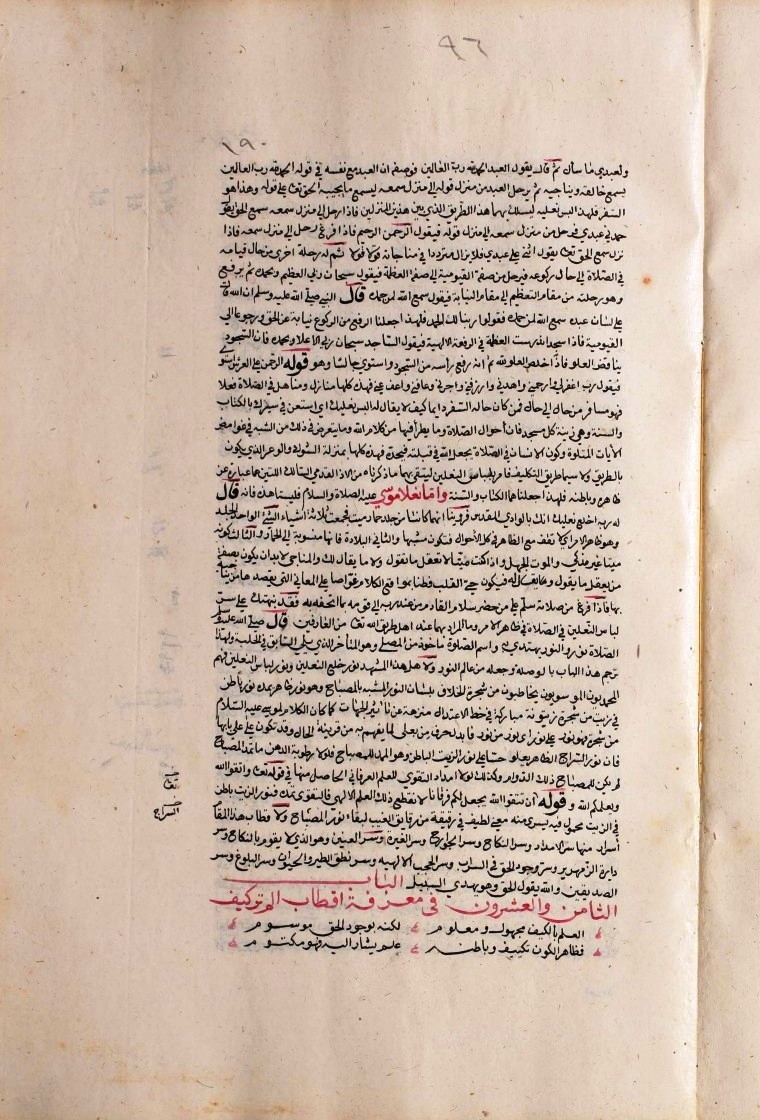 ٩٦
١٩٠
ولعبدي ما سأل ثم قال يقول العبد الحمد لله رب العالمين فوصفه ان العبد مع نفسه في قوله الحمد لله رب العالمين
يسمع خالقه ويناجيه ثم يرحل العبد من منزل قوله الى منزل سمعه ليسمع ما يجيبه الحق تعالى على قوله وهذا هو
السفر فلهذا لبس نعليه ليسلك بهما هذا الطريق الذي بين هذين المنزلين فاذا رحل الى منزل سمعه سمع الحق يقول
حمدني عبدي فرحل من منزل سمعه الى منزل قوله فيقول الرحمن الرحيم فاذا فرغ رحل الى منزل سمعه فاذا
نزل سمع الحق تعالى يقول اثنى علي عبدي فلا يزال مترددا في مناجاته قولا قولا ثم له رحلة اخرى من حال قيامه
في الصلاة الى حال ركوعه فيرحل من صفة القيومية الى صفة العظمة فيقول سبحان ربي العظيم وبحمده ثم يرفع
وهو رحلته من مقام التعظيم الى مقام النيابة فيقول سمع الله لمن حمده قال النبي صلى الله عليه وسلم ان الله قال
على لسان عبده سمع الله لمن حمده فقولوا ربنا لك الحمد فلهذا جعلنا الرفع من الركوع نيابة عن الحق ورجوعا الى
القيومية فاذا سجد اندرست العظمة في الرفعة الالهية فيقول الساجد سبحان ربي الاعلا وبحمده فان السجود
يناقض العلو فاذا خلص العلو لله ثم انه رفع راسه من السجود واستوى جالسا وهو قوله الرحمن على العرش استوى
فيقول رب اغفر لي وارحمني واهدني وارزقني واجبرني وعافني واعف عني فهذه كلها منازل ومناهل في الصلاة فعلا
فهو مسافر من حال الى حال فمن كان حاله السفر دايما كيف لا يقال له البس نعليك اي استعن في سيرك بالكتاب
والسنة وهي زينة كل مسجد فان احوال الصلاة وما يطرأ فيها من كلام الله وما يتعرض في ذلك من الشبه في غوامض
الآيات المتلوة وكون الانسان في الصلاة يجعل الله في قبلته فيجده فهذه كلها بمنزلة الشوك والوعر الذي يكون
بالطريق ولا سيما طريق التكليف فامر بلباس النعلين ليتقي بهما ما ذكرناه من الاذى لقدمي السالك اللتين هما عبارة عن
ظاهره وباطنه فلهذا جعلناهما الكتاب والسنة واما نعلا موسى عليه الصلاة والسلام فليستا هذه فانه قال
له ربه اخلع نعليك انك بالوادي المقدس فروينا انهما كانتا من جلد حمار ميت فجمعت ثلاثة اشياء الشئ الواحد الجلد
وهو ظاهر الامر اي لا تقف مع الظاهر في كل الاحوال والثاني البلادة فانها منسوبة الى الحمار والثالث كونه
ميتا غير مذكى والموت الجهل واذا كنت ميتا لا تعقل ما تقول ولا ما يقال لك والمناجي لا بد ان يكون بصفة
من يعقل ما يقول وما يقال له فيكون حي القلب فطنا بمواقع الكلام غواصا على المعاني التي يقصدها من يناجيه
بها فاذا فرغ من صلاته سلم على من حضر سلام القادم من عند ربه الى قومه بما اتحفه به فقد نبهتك على سر
لباس النعلين في الصلاة في ظاهر الامر وما المراد بهما عند اهل طريق الله تعالى من العارفين قال صلى الله عليه وسلم
الصلاة نور والنور يهتدى به واسم الصلوة ماخوذ من المصلي وهو المتاخر الذي يلي السابق في الحلبة ولهذا
ترجم هذا الباب بالوصلة وجعله من عالم النور ولاهل هذا المشهد نور خلع النعلين ونور لباس النعلين فهم
المحمديون الموسويون يخاطبون من شجرة الخلاف بلسان النور المشبه بالمصباح وهو نور ظاهر يمده نور باطن
في زيت من شجرة زيتونة مباركة في خط الاعتدال منزهة عن تاثير الجهات كما كان الكلام لموسى عليه السلام
من شجرة فهو نور على نور اي نور من نور فابدل حرف من بعلى لما يفهم به من قرينة الحال وقد تكون على على بابها
فان نور السراج الظاهر يعلو حسا على نور الزيت الباطن وهو الممد للمصباح فلولا رطوبة الدهن ما تمد المصباح
لم يكن للمصباح ذلك الدوام وكذلك لولا امداد التقوى للعلم العرفاني الحاصل منها في قوله تعالى واتقوا الله
ويعلمكم الله وقوله ان تتقوا الله يجعل لكم فرقانا لانقطع ذلك العلم الالهي فالتقوى تمده فنور الزيت باطن
في الزيت محمول فيه يسري منه معنى لطيف في رقيقة من رقايق الغيب لبقاء نور المصباح ولاقطاب هذا المقام
أسرار منها سر الامداد وسر النكاح وسر الجوارح وسر الغيرة وسر العنين وهو الذي لا يقوم بالنكاح وسر
دايرة الزمهرير وسر وجود الحق في السراب وسر الحجب الالهيه وسر نطق الطير والحيوان وسر البلوغ وسر
الصديقين والله يقول الحق وهو يهدي السبيل الباب
الثامن والعشرون في معرفة اقطاب الم تر كيف
العلم بالكيف مجهول ومعلوم لكنه بوجود الحق موسوم
فظاهر الكون تكييف وباطنه علم يشار اليه فهو مكتوم
السراج